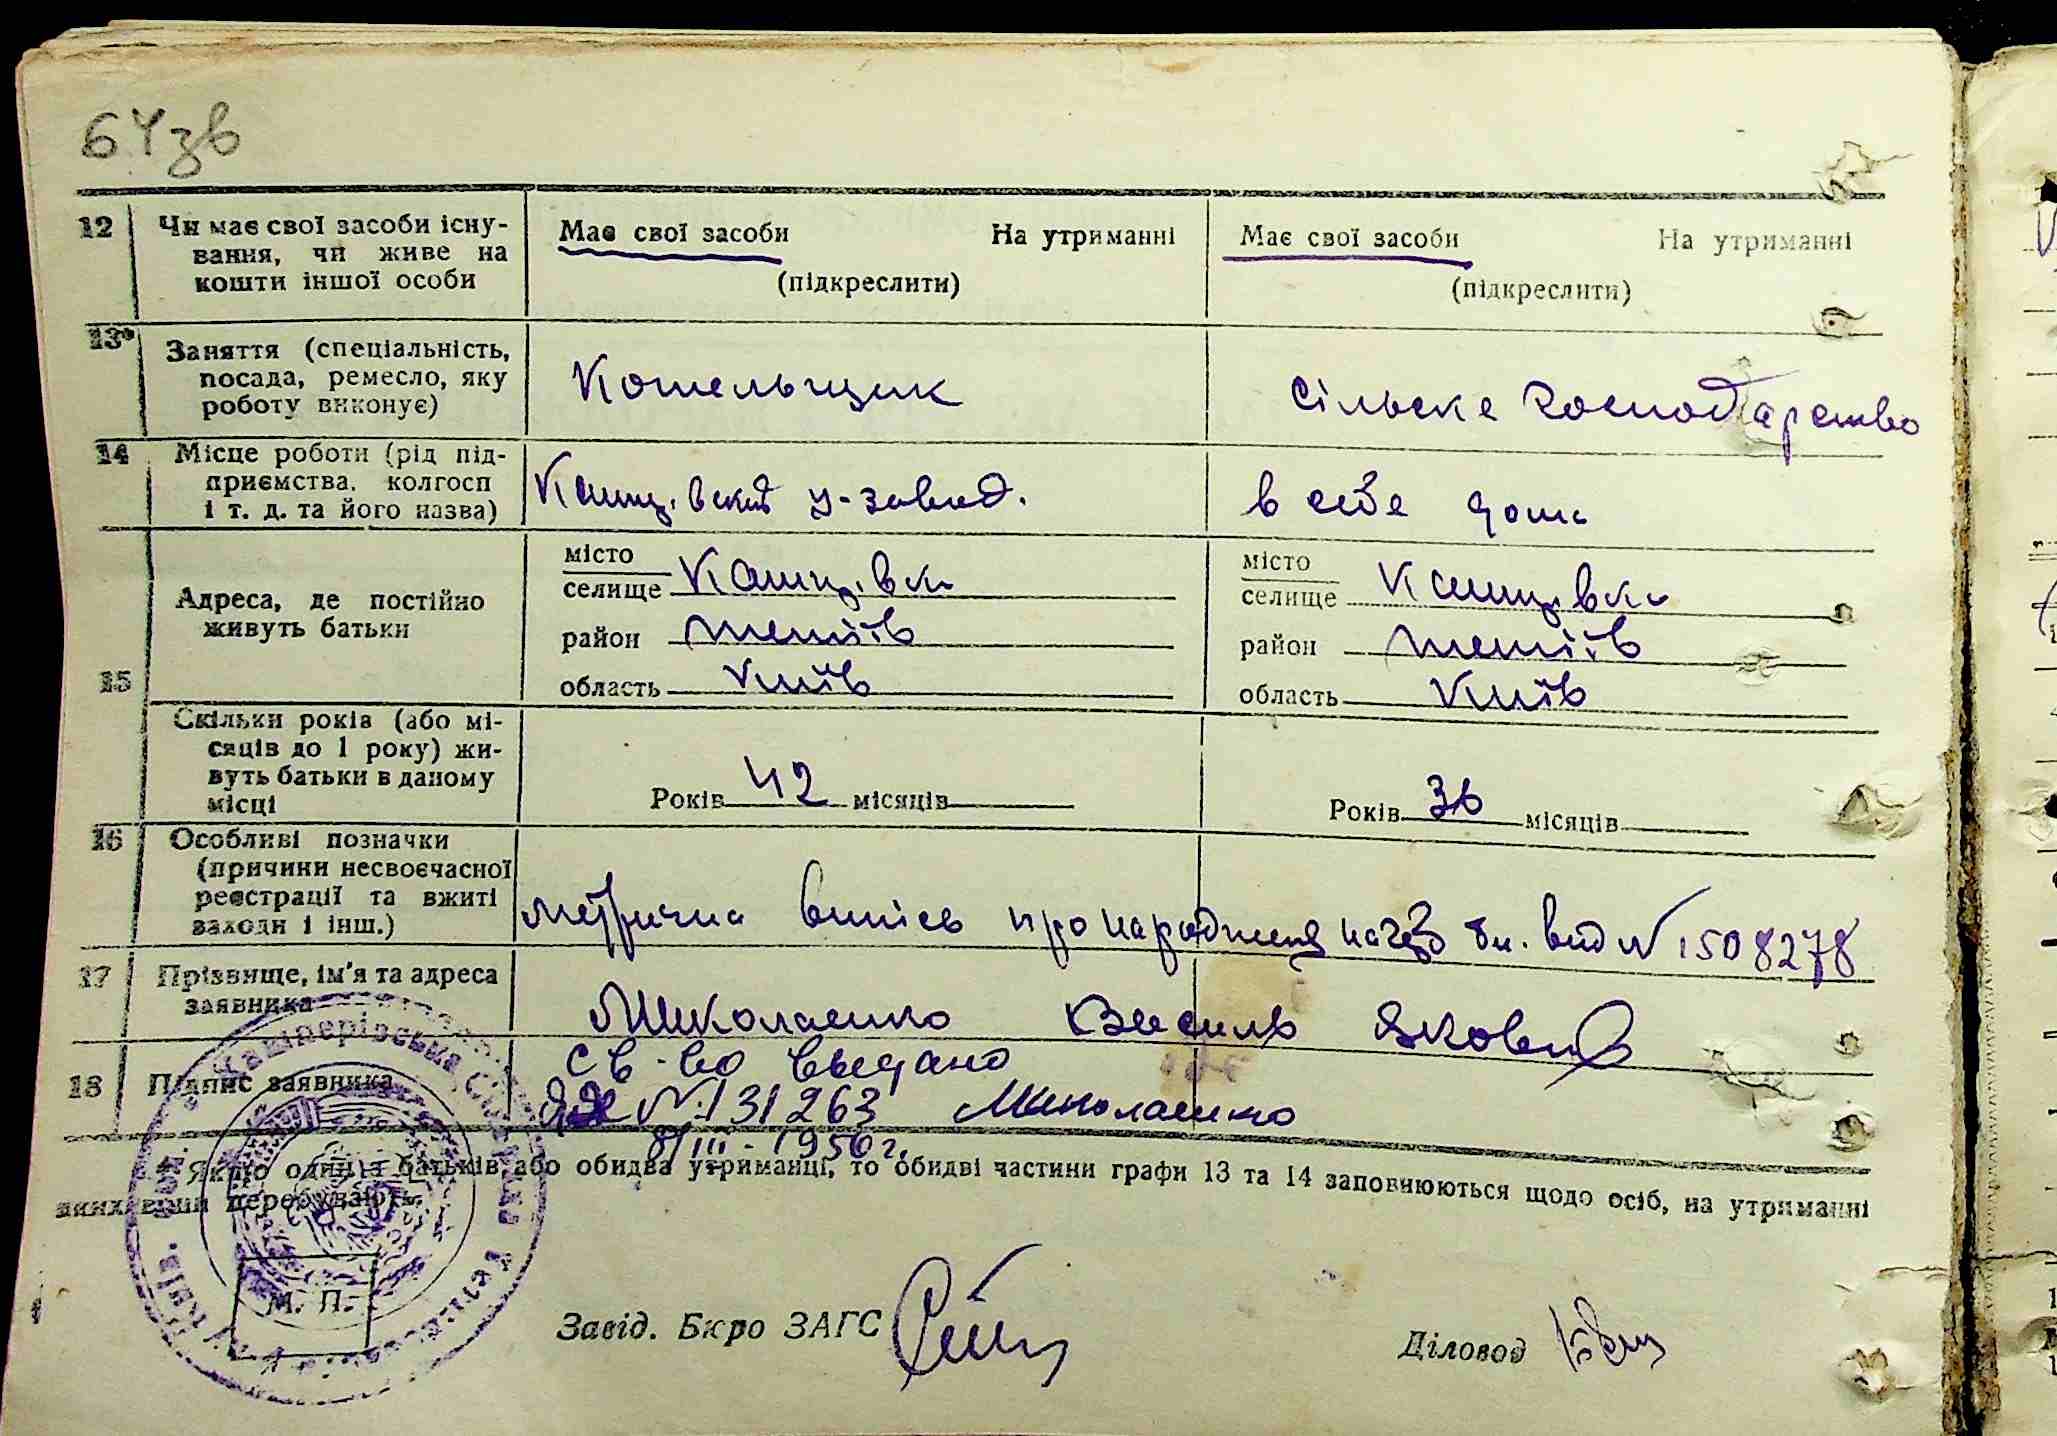 64зв
12 Чи має свої засоби існу-
вання, чи живе на
кошти іншої особи
Має свої засоби На утриманні
(підкреслити)
Має свої засоби На утриманні
(підкреслити)
13* Заняття (спеціальність,
посада, ремесло, яку
роботу виконує)
Котельщик
сільске господарство
14 Місце роботи (рід під-
приємства, колгосп
і т. д. та його назва)
завод.
в себе дома
15 Адреса, де постійно
живуть батьки
місто
селище
район Тетіїв
область Київ
місто
селище
район Тетіїв
область Київ
Скільки років (або мі-
сяців до 1 року) жи-
вуть батьки в даному
місці
Років 42 місяців
Років 36 місяців
16 Особливі позначки
(причини несвоєчасної
реєстрації та вжиті
заходи і інш.)
Метрична випись про народження № 1508278
17 Прізвище, ім'я та адреса
заявника
Миколаенко Василь Якович
18 Підпис заявника
св-во выдано
ЯЖ № 131263 Миколаенко
8/III-1950 г.
* Якщо один з батьків або обидва утриманці, то обидві частини графи 13 та 14 заповнюються щодо осіб, на утриманні
яких вони перебувають.
М. П.
Завід. Бюро ЗАГС
Діловод